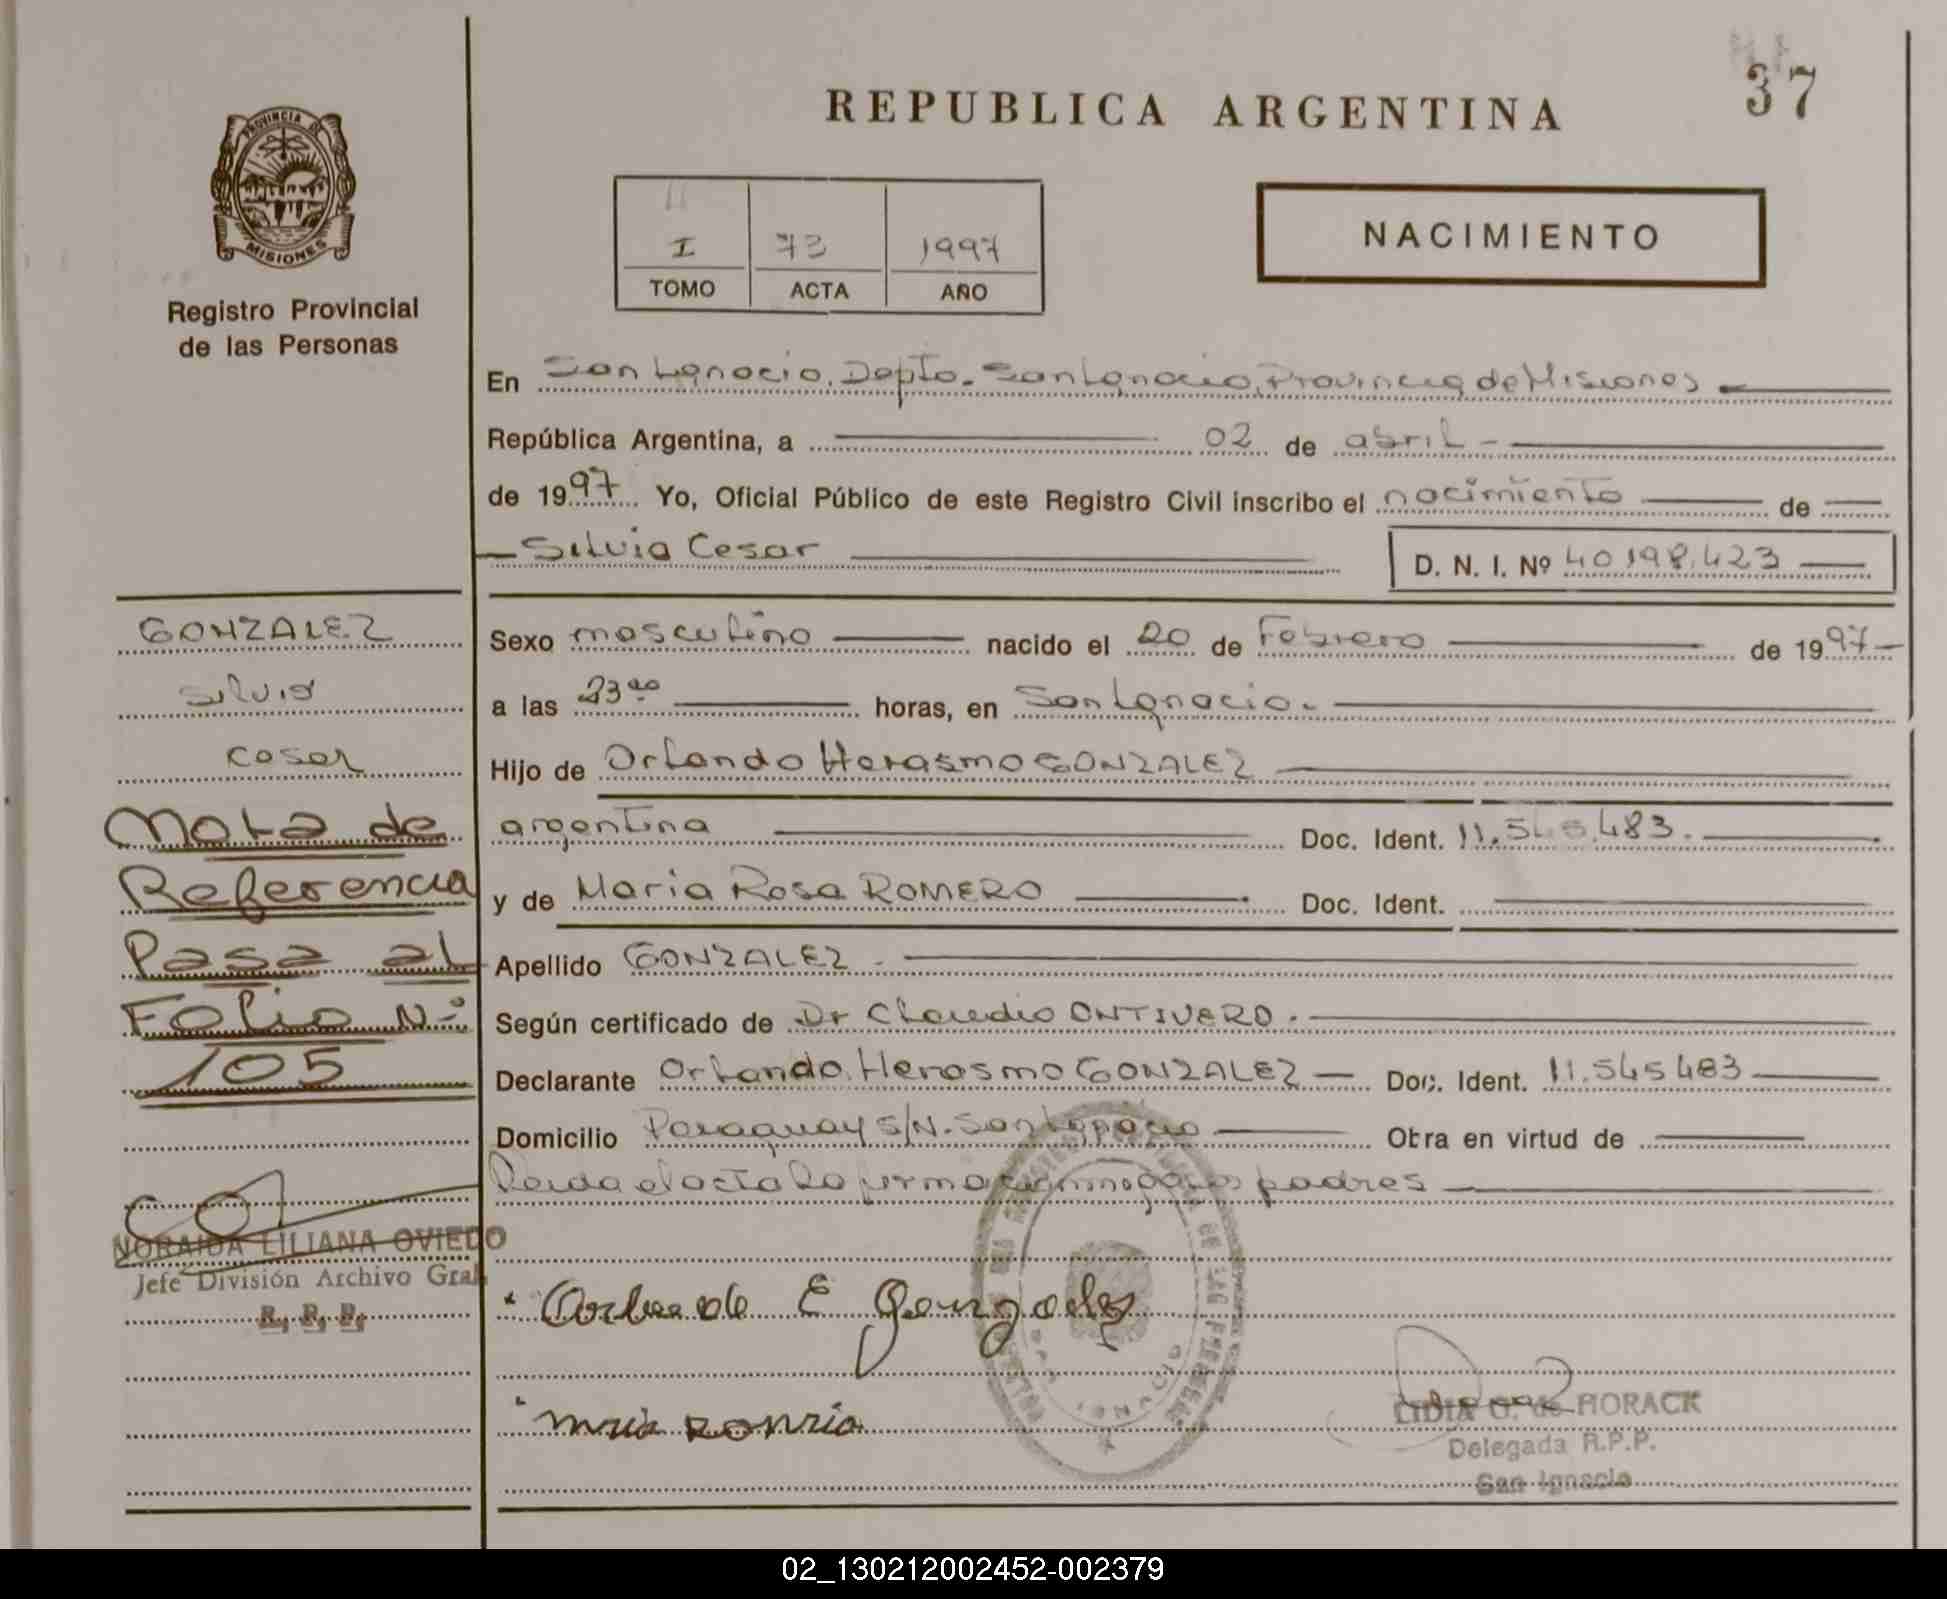 37
REPUBLICA ARGENTINA
PROVINCIA DE
MISIONES
Registro Provincial
de las Personas
I 73 1997
TOMO ACTA AÑO
NACIMIENTO
En San Ignacio, Depto. San Ignacio, Provincia de Misiones
República Argentina, a 02 de abril
de 1997 Yo, Oficial Público de este Registro Civil inscribo el nacimiento de
Silvio Cesar D. N. I. Nº 40198.423
Sexo masculino nacido el 20 de Febrero de 1997
a las 23 horas, en San Ignacio.
Hijo de Orlando Herasmo GONZALEZ
argentina Doc. Ident. 11.545.483.
y de Maria Rosa ROMERO Doc. Ident.
Apellido GONZALEZ
Según certificado de Dr Claudio ONTIVERO.
Declarante Orlando Herasmo GONZALEZ Doc. Ident. 11.545483
Domicilio Paraguay S/N. San Ignacio Obra en virtud de
Leida el acta la firma padres
GONZALEZ
Silvio
Cesar
Nota de
Referencia
Pasa al
Folio Nº
105
NORAIDA LILIANA OVIEDO
Jefe División Archivo Gral.
R. P. P.
E Gonzalez
LIDIA G. de HORACK
Delegada R.P.P.
San Ignacio
02_130212002452-002379